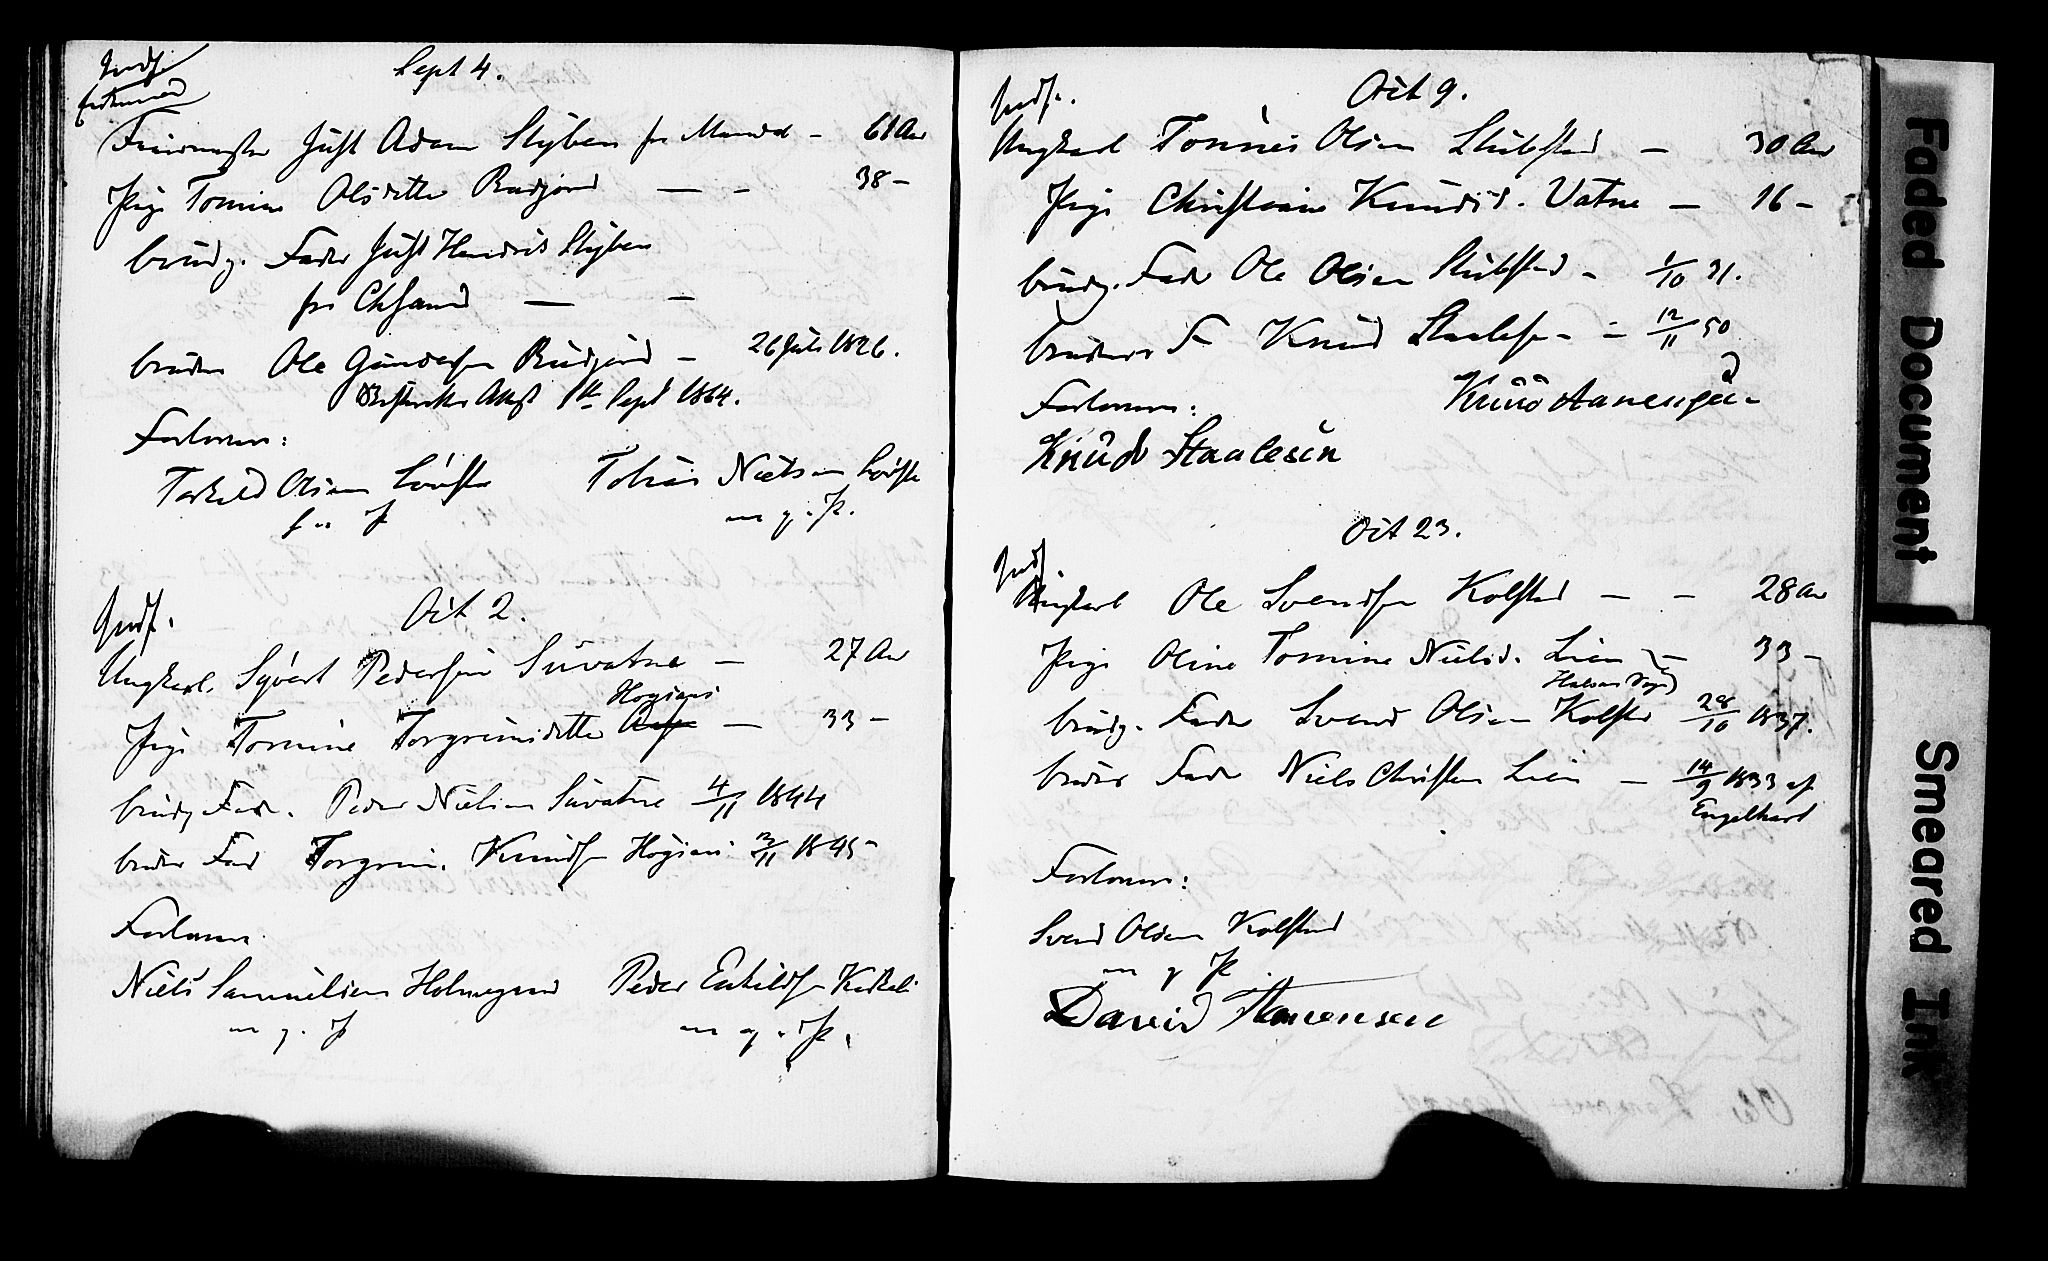 Indf.
Sept 4.
Just Adam Styben fra Mandal - 61 Aar
Pige Tomine Olsdatter Rudjord - - 38 -
brudg. Fader Just Hendrik Styben
fra Chsand - -
bruden Ole Gundersen Rudjord - 26 Juli 1826.
Attest 1te Sept 1864.
Forlovere:
Torkild Olsen Tobias Nielsen
m. p. P.
Indf.
Oct 2.
Ungkarl. Syvert Pedersen Suvatne - 27 Aar
Høgsaas
Pige Tomine Torgrimsdatter - 33 -
brudg Fad. Peder Nielsen Suvatne 4/11 1844
brudes Fad Torgrim Knudsen 3/11 1845 -
Forlovere
Niels Samuelsen Holmegaard Peder Eskildsen
m. p. P m. p. P.
Indf.
Oct 9.
Ungkarl Tønnes Olsen Stubstad - 30 Aar
Pige Christiane Knudsd. Vatne - 16 -
brudg. Fader Ole Olsen Stubstad - 1/10 31.
brudens F Knud Staalesen - 12/11 50
Forlovere:
Knud Aanensen
Knud Staalesen
Oct 23.
Indf.
Ungkarl Ole Svendsen Kolstad - - 28 Aar
Pige Oline Tomine Nielsd. Lien - 33 -
brudg. Fader Svend Olsen Kolstad 28/10 1837.
brudes Fader Niels Christen Lien - 14/9 1833 af
Engelhart
Forlovere:
Svend Olsen Kolstad
m p P
David Hanensen
Faded Document
Smeared Ink